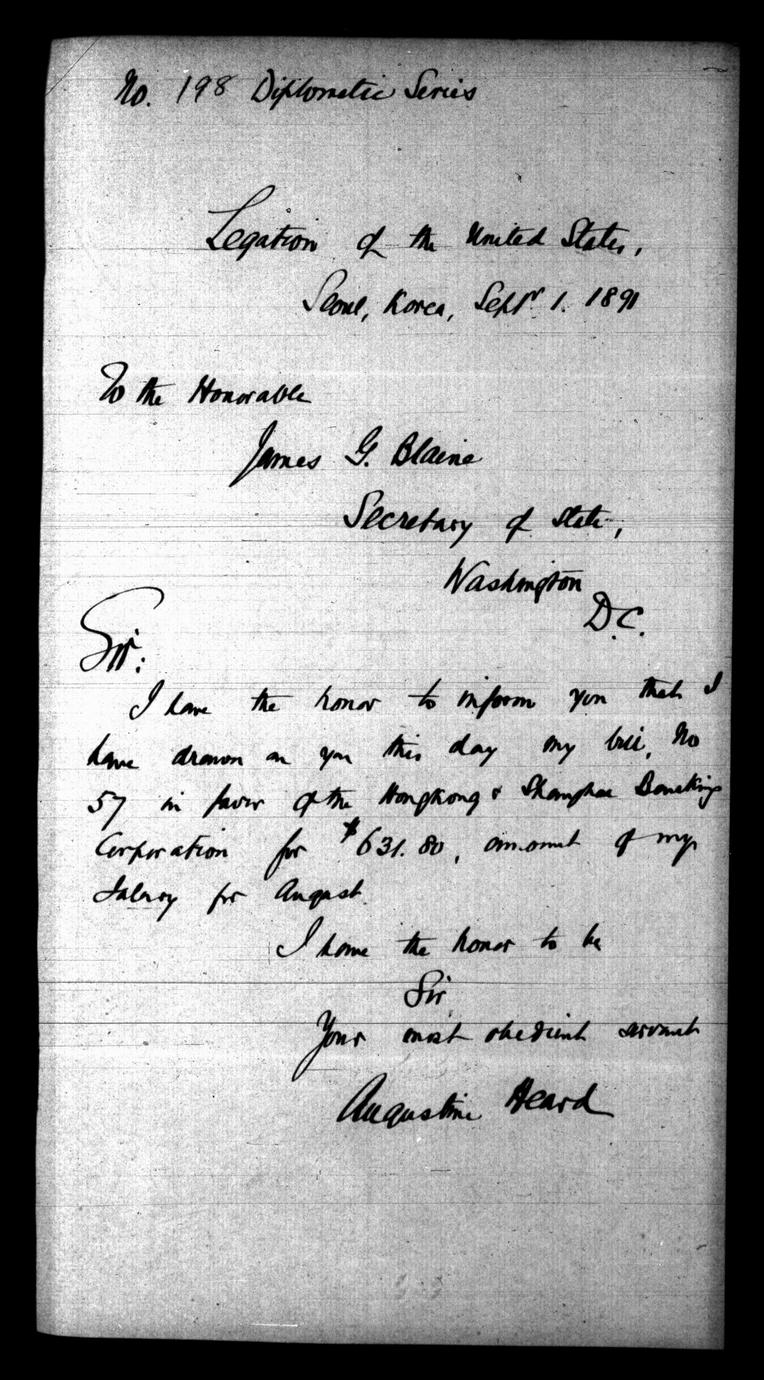 No. 198 Diplomatic Series
Legation of the United States,
Seoul, Korea, Septr 1. 1891
To the Honorable
James G. Blaine
Secretary of State,
Washington
D.C.
Sir:
I have the honor to inform you that I
have drawn on you this day my bill, No
57 in favor of the Hongkong & Shanghai Banking
Corporation for $631.80, amount of my
Salary for August.
I have the honor to be
Sir
Your most obedient servant
Augustine Heard